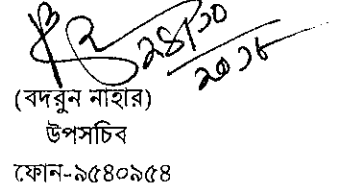 ২৪/১০
২০১৮
(বদরুন নাহার)
উপসচিব
ফোন-৯৫৪০৯৫৪